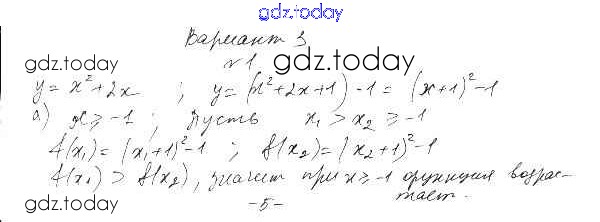 gdz.today
Вариант 3
gdz.today
№1 gdz.today
y = x² + 2x ; y = (x² + 2x + 1) - 1 = (x+1)² - 1
а) x ≥ -1 ; пусть x₁ > x₂ ≥ -1
f(x₁) = (x₁+1)² - 1 ; f(x₂) = (x₂+1)² - 1
f(x₁) > f(x₂), значит при x ≥ -1 функция возрас-
тает.
gdz.today -5- gdz.today